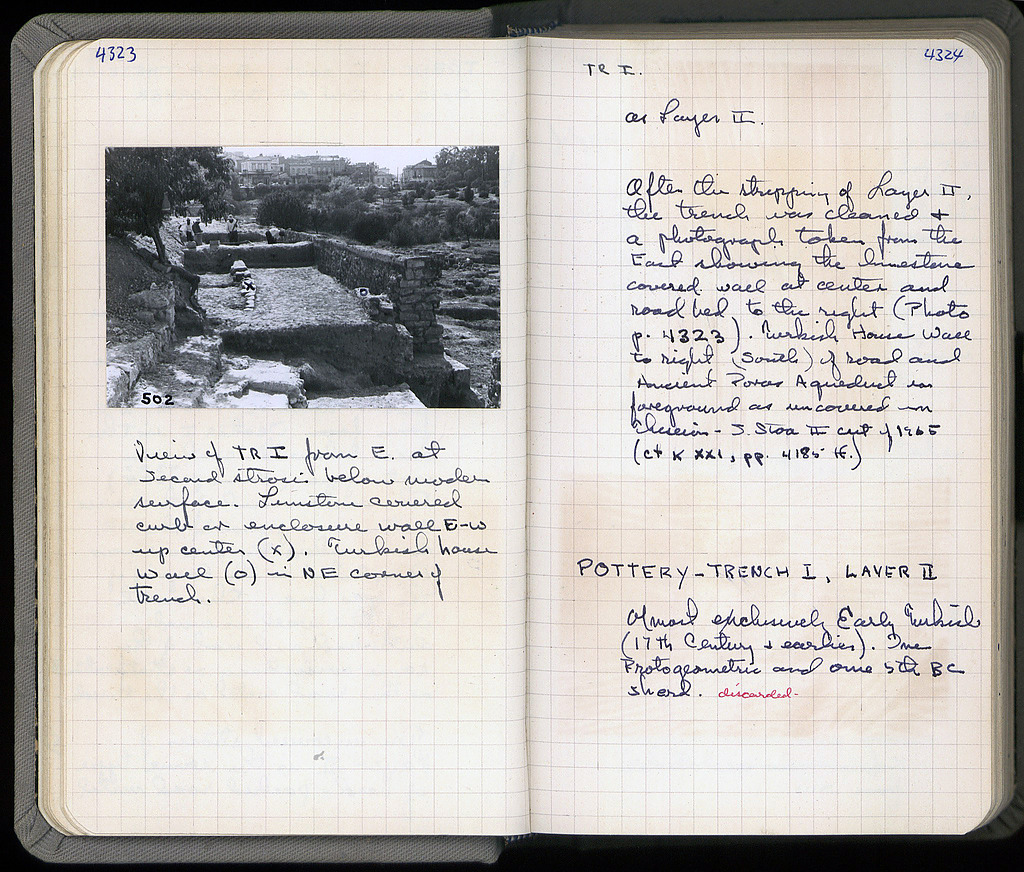 4323
502
View of TR I from E. at
second strosis below modern
surface. Limestone covered
curb or enclosure wall E-W
up center (x). Turkish house
wall (o) in NE corner of
trench.
4324
TR I.
as Layer II.
After the stripping of Layer II,
the trench was cleaned +
a photograph taken from the
East showing the limestone
covered wall at center and
road bed to the right (Photo
p. 4323). Turkish House Wall
to right (South) of road and
Ancient Poros Aqueduct in
foreground as uncovered in
Theseion - S. Stoa II cut of 1965
(cf K XXI, pp. 4185 ff.)
POTTERY - TRENCH I, LAYER II
Almost exclusively Early Turkish
(17th Century + earlier). One
Protogeometric and one 5th BC
sherd. discarded-